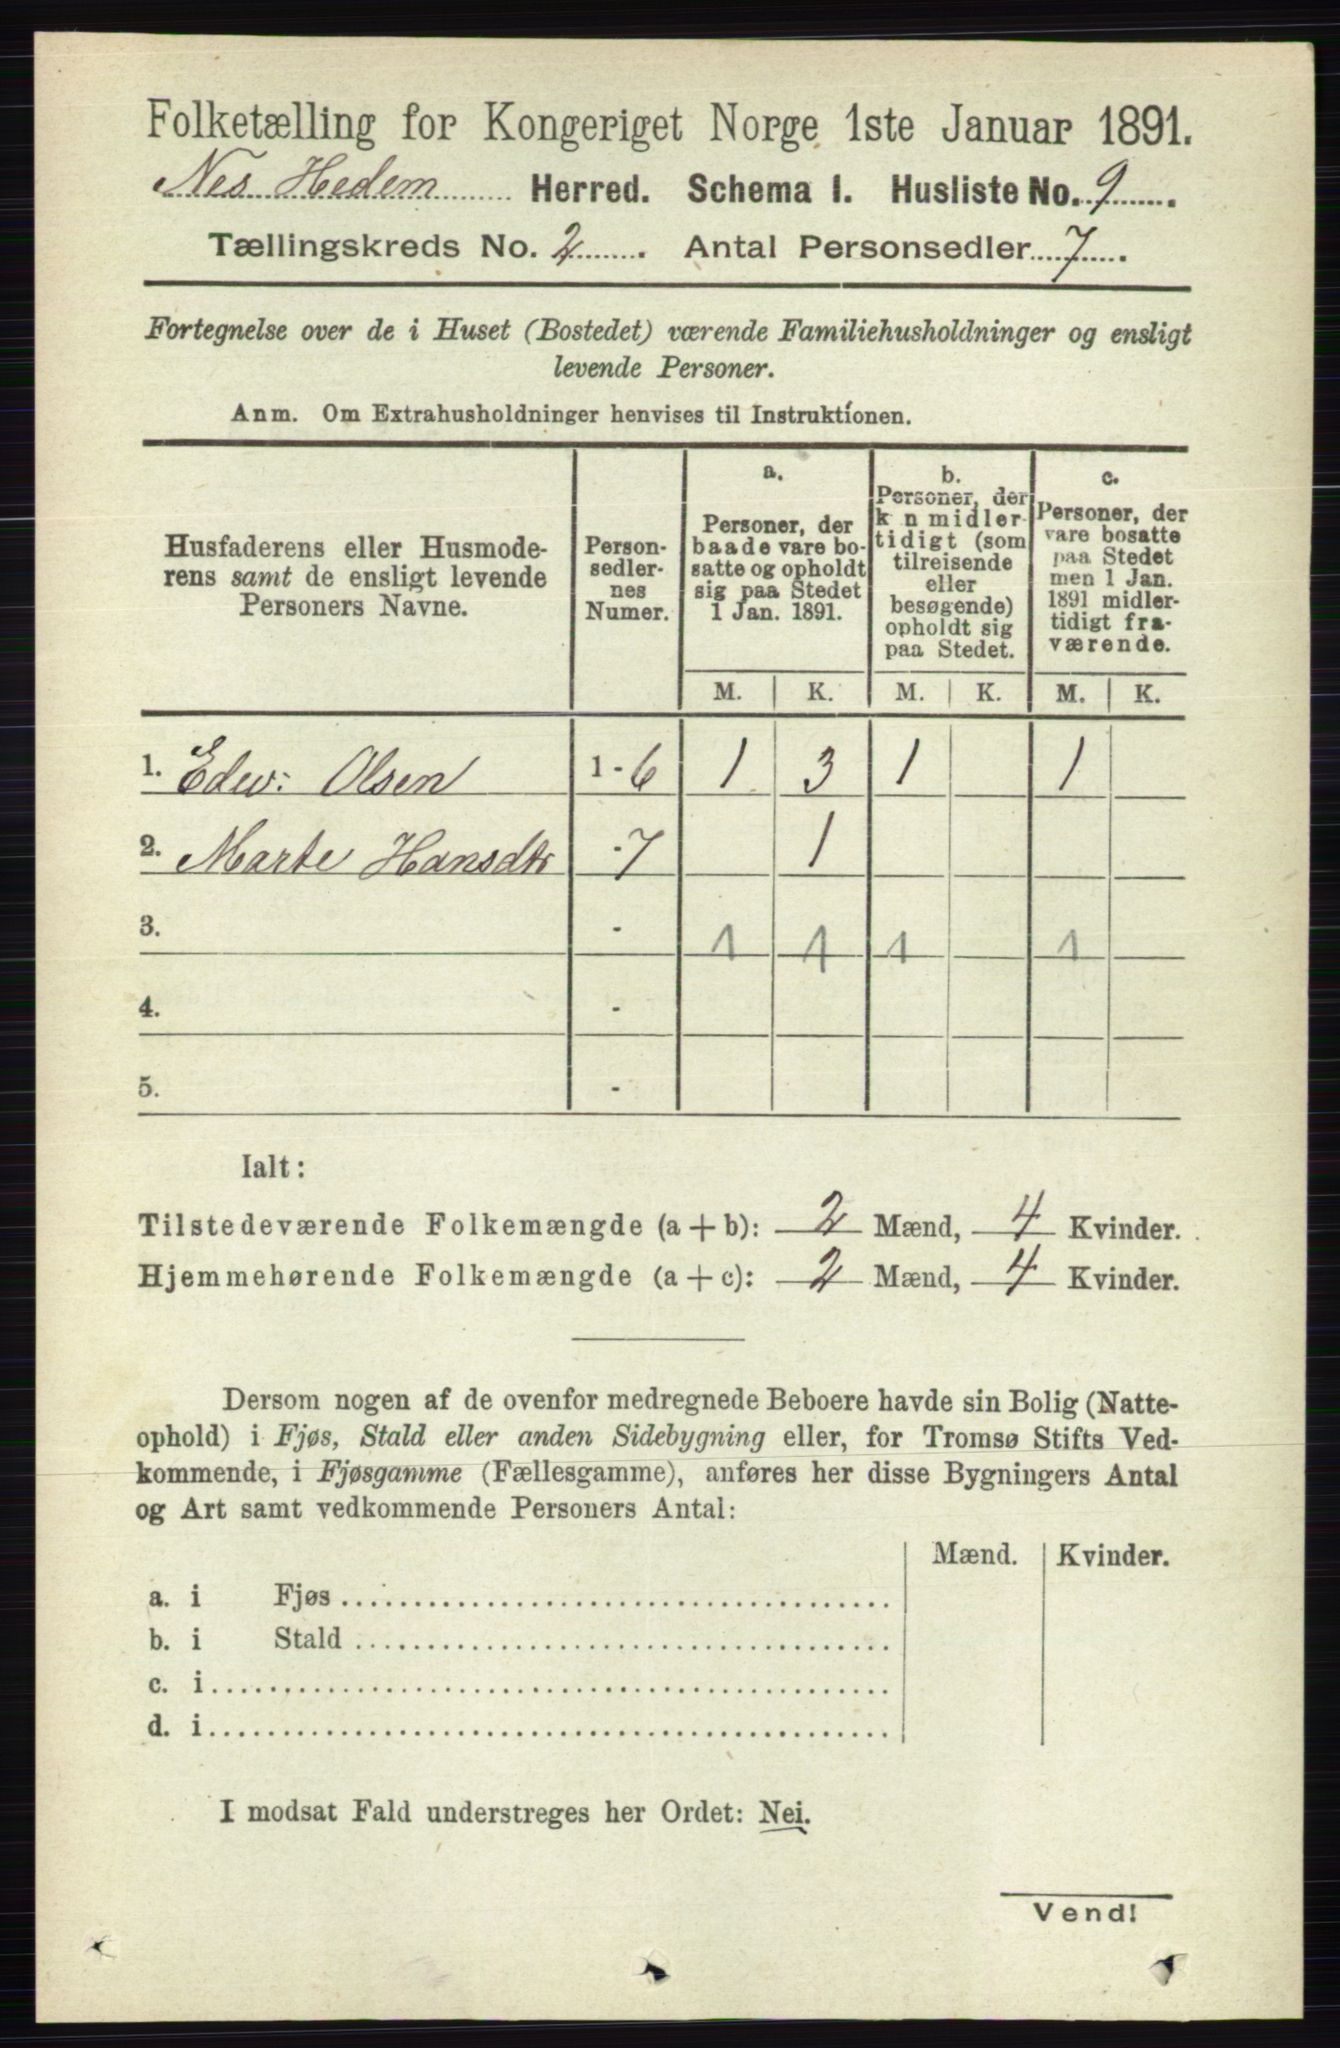 Folketælling for Kongeriget Norge 1ste Januar 1891.
Nes Hedem Herred. Schema 1. Husliste No. 9
Tællingskreds No. 2 Antal Personsedler 7
Fortegnelse over de i Huset (Bostedet) værende Familiehusholdninger og ensligt
levende Personer.
Anm. Om Extrahusholdninger henvises til Instruktionen.
Husfaderens eller Husmode-
rens samt de ensligt levende
Personers Navne.
Person-
sedler-
nes
Numer.
a.
Personer, der
baade vare bo-
satte og opholdt
sig paa Stedet
1 Jan. 1891.
b.
Personer, der
k n midler-
tidigt (som
tilreisende
eller
besøgende)
opholdt sig
paa Stedet.
c.
Personer, der
vare bosatte
paa Stedet
men 1 Jan.
1891 midler-
tidigt fra-
værende.
M. K. M. K. M. K.
1. Edw: Olsen 1-6 1 3 1 1
2. Marte Hansdtr -7 1
3. - 1 4 1 1
4. -
5. -
Ialt:
Tilstedeværende Folkemængde (a + b): 2 Mænd, 4 Kvinder.
Hjemmehørende Folkemængde (a + c): 2 Mænd, 4 Kvinder.
Dersom nogen af de ovenfor medregnede Beboere havde sin Bolig (Natte-
ophold) i Fjøs, Stald eller anden Sidebygning eller, for Tromsø Stifts Ved-
kommende, i Fjøsgamme (Fællesgamme), anføres her disse Bygningers Antal
og Art samt vedkommende Personers Antal:
Mænd. Kvinder.
a. i Fjøs
b. i Stald
c. i
d. i
I modsat Fald understreges her Ordet: Nei.
Vend!